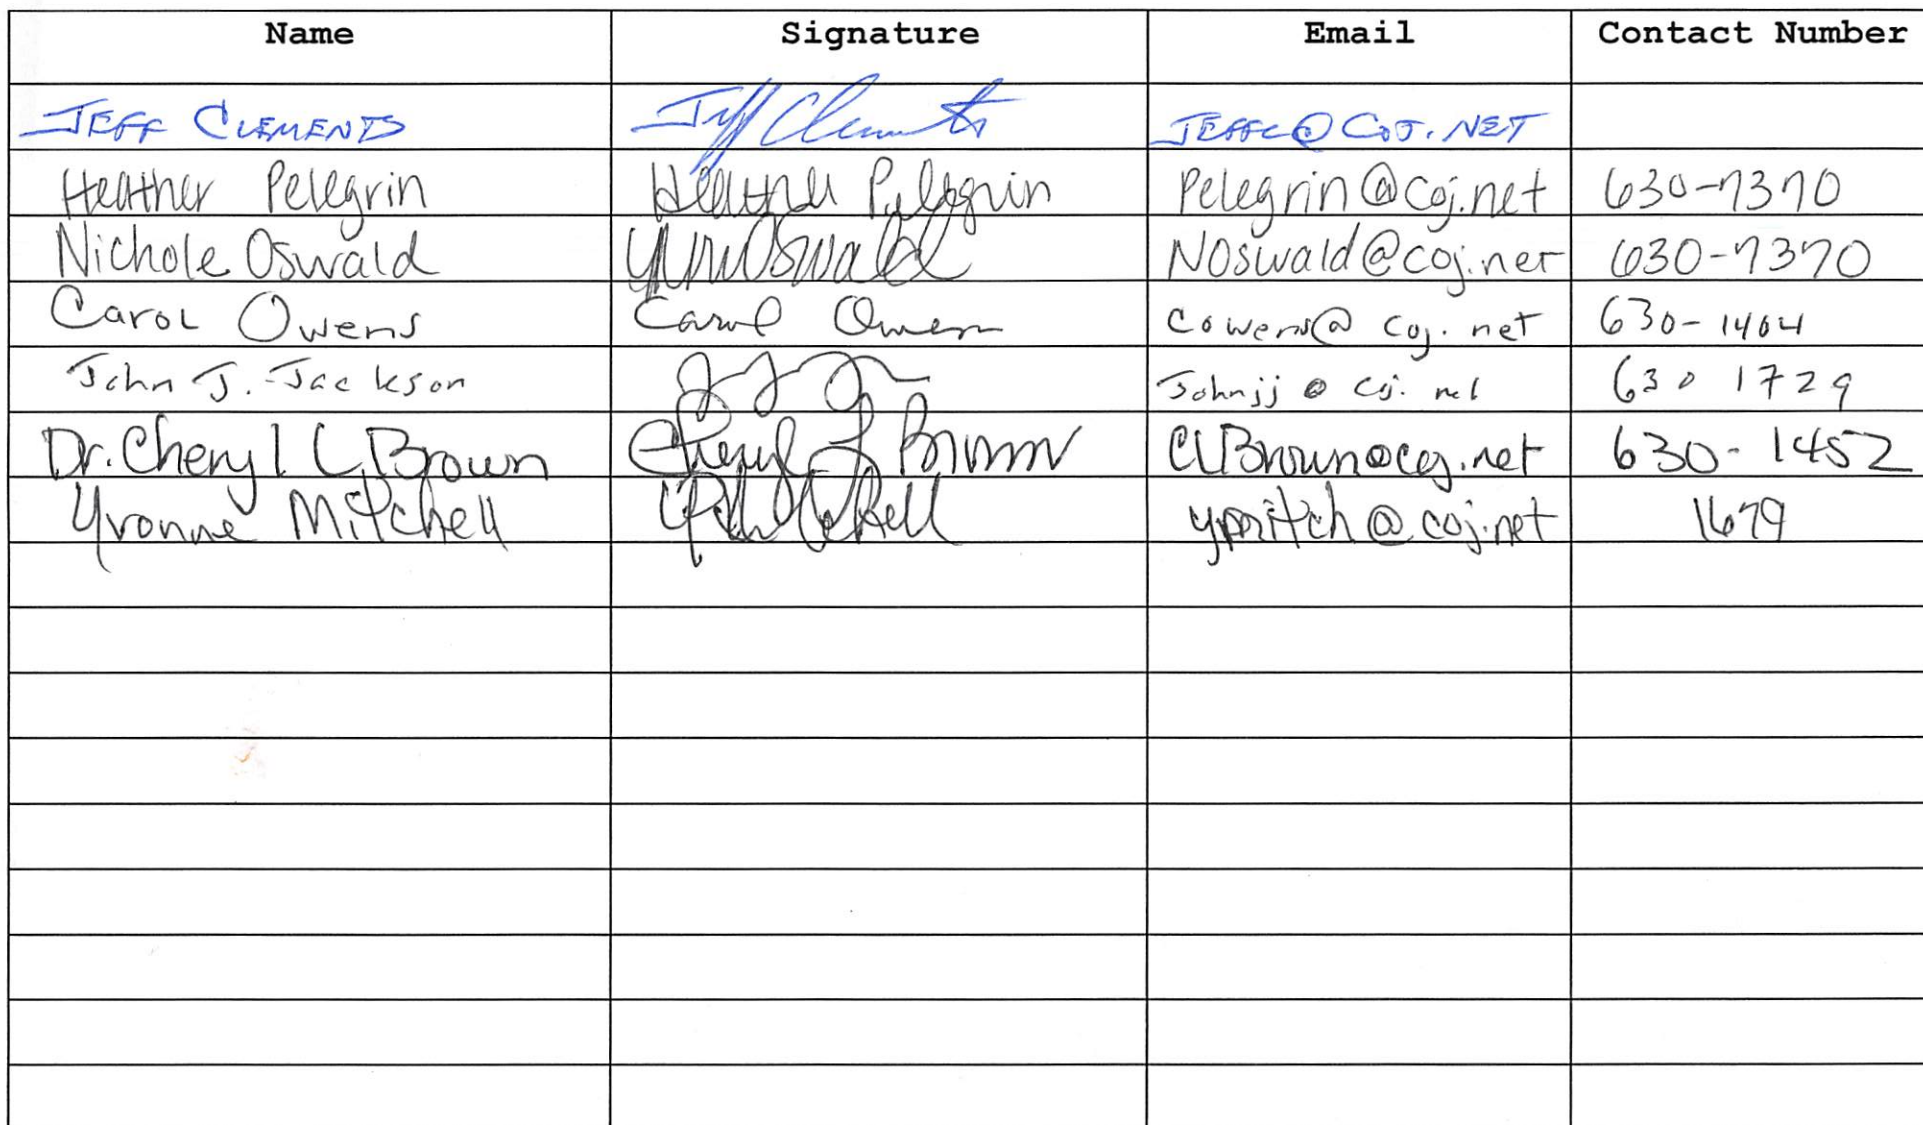 Name Signature Email Contact Number
JEFF CLEMENTS Jeff Clements JEFFC@COJ.NET
Heather Pelegrin Heather Pelegrin Pelegrin@coj.net 630-7370
Nichole Oswald Oswald NOswald@coj.net 630-7370
Carol Owens Carol Owens Cowens@coj.net 630-1404
John J. Jackson Johnjj@coj.net 630 1729
Dr. Cheryl L. Brown Cheryl L Brown CLBrown@coj.net 630-1452
Yvonne Mitchell Mitchell ymitch@coj.net 1679